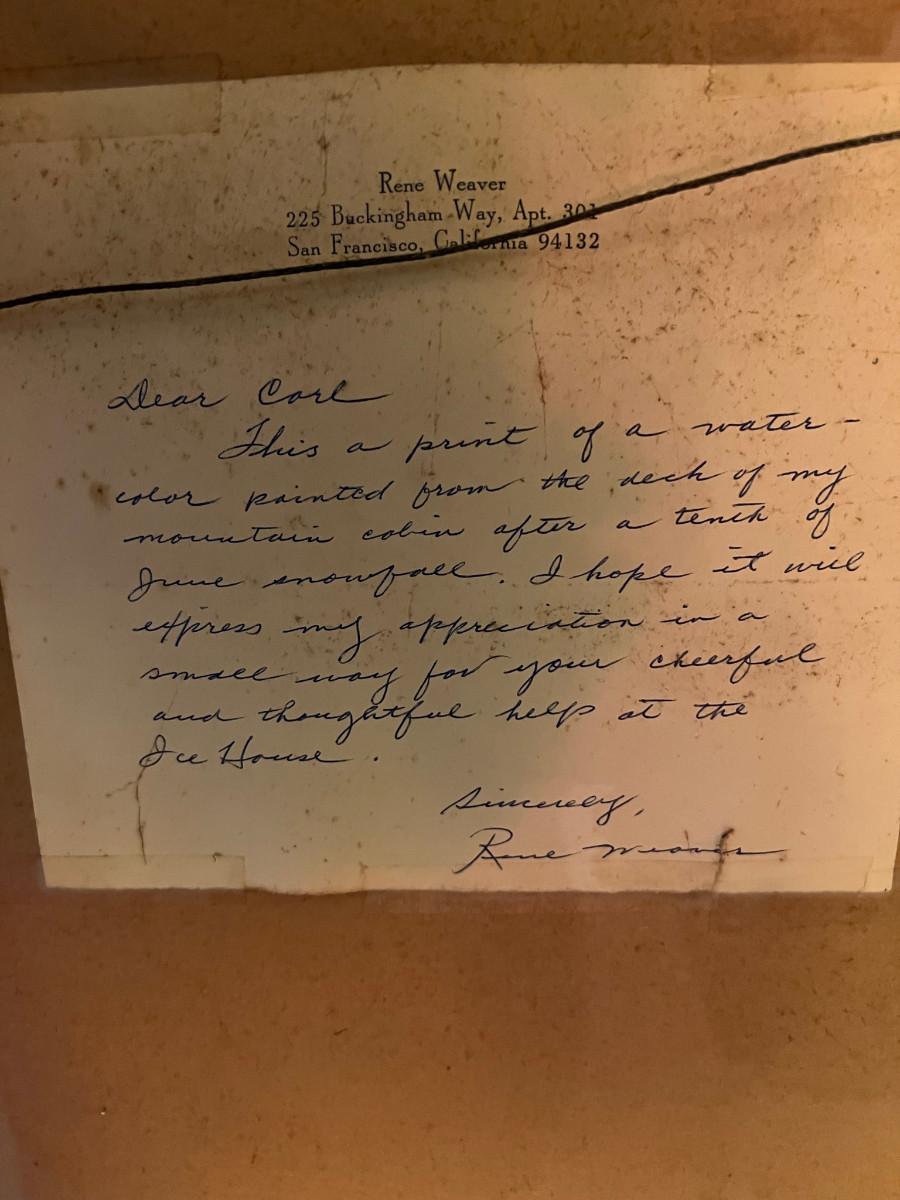 Rene Weaver
225 Buckingham Way, Apt. 301
San Francisco, California 94132
Dear Carl
This a print of a water-
color painted from the deck of my
mountain cabin after a tenth of
June snowfall. I hope it will
express my appreciation in a
small way for your cheerful
and thoughtful help at the
Ice House.
Sincerely,
Rene Weaver